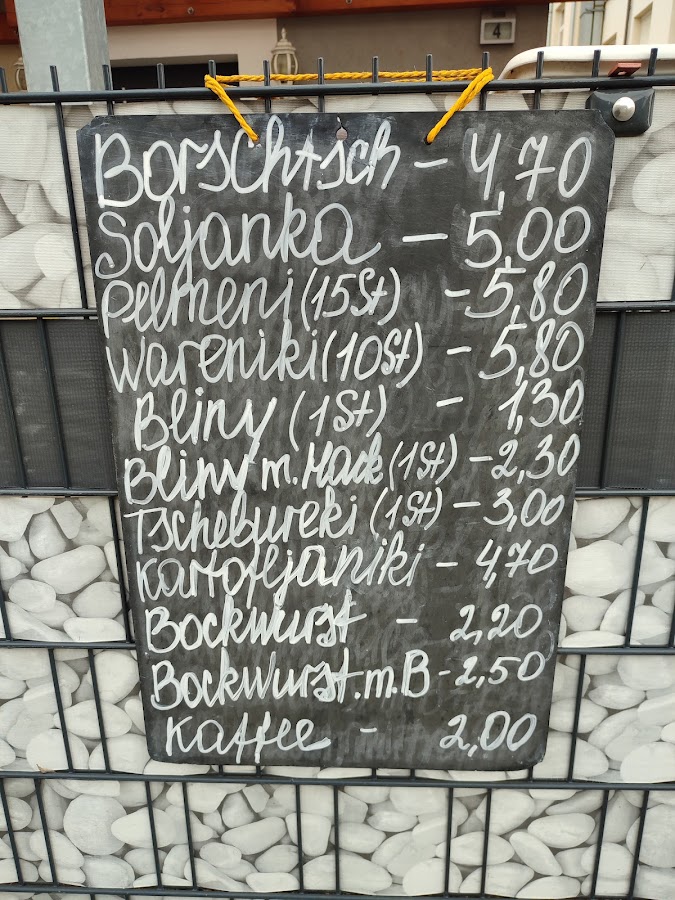 4
Borschtsch - 4,70
Soljanka - 5,00
Pelmeni (15St) - 5,80
Wareniki (10St) - 5,80
Bliny (1St) - 1,30
Bliny m. Hack (1St) - 2,30
Tschebureki (1St) - 3,00
Kartofljaniki - 4,70
Bockwurst - 2,20
Bockwurst.m.B - 2,50
Kaffee - 2,00